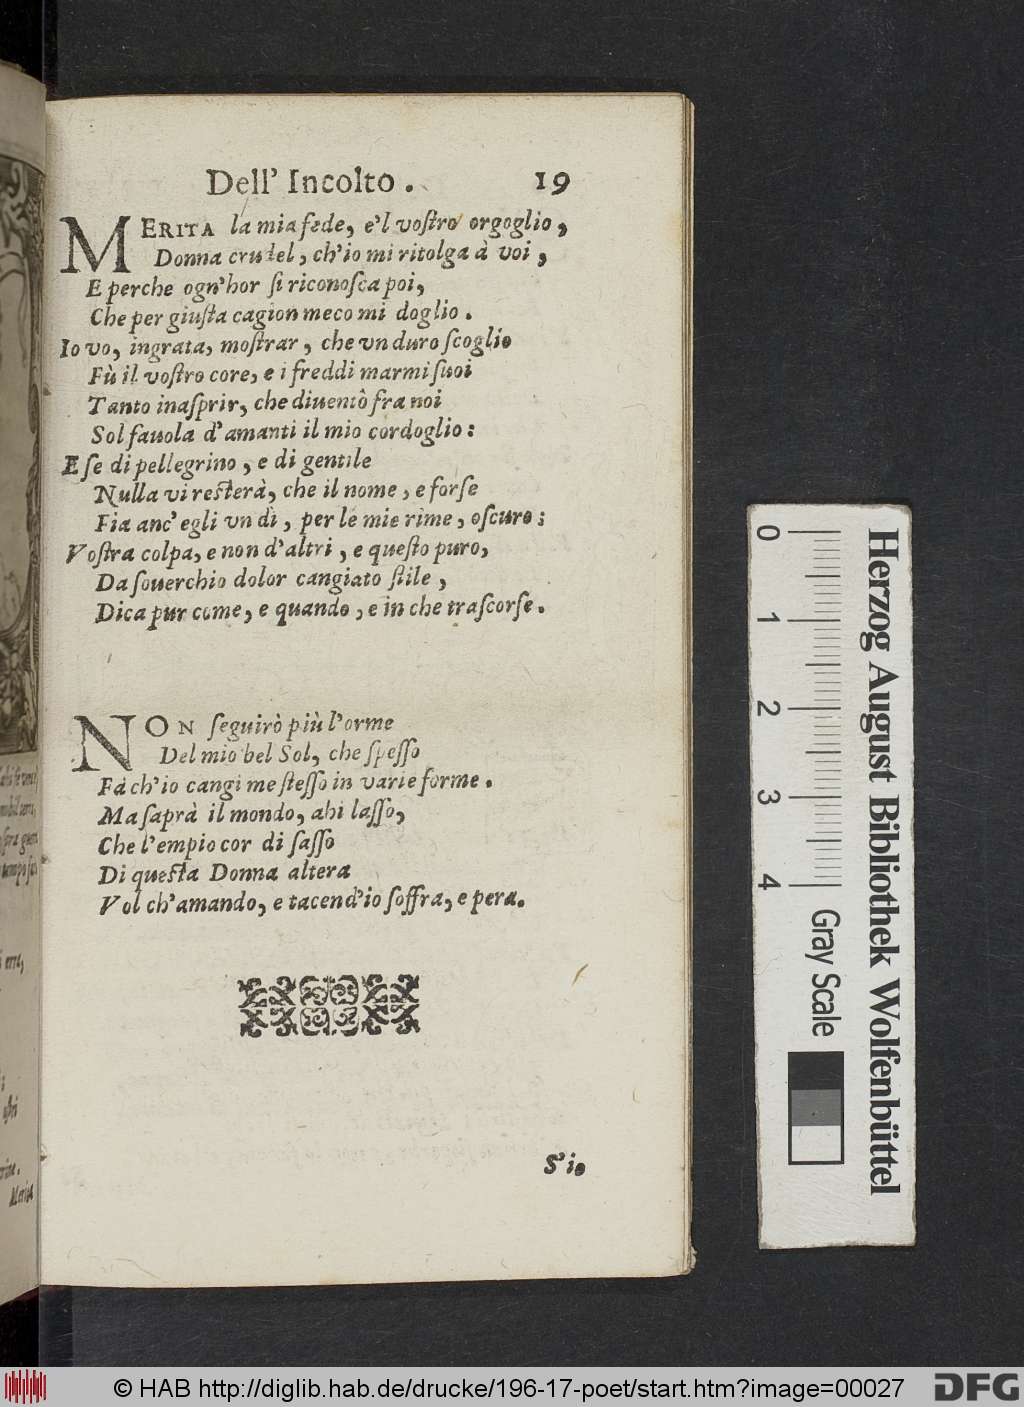 Dell' Incolto. 19
MERITA la mia fede, e'l voſtro orgoglio,
Donna crudel, ch'io mi ritolga à voi,
E perche ogn'hor ſi riconoſca poi,
Che per giuſta cagion meco mi doglio.
Io vo, ingrata, moſtrar, che vn duro ſcoglio
Fù il voſtro core, e i freddi marmi ſuoi
Tanto inaſprir, che diuentò fra noi
Sol fauola d'amanti il mio cordoglio:
E ſe di pellegrino, e di gentile
Nulla vi reſterà, che il nome, e forſe
Fia anc' egli vn dì, per le mie rime, oſcuro;
Voſtra colpa, e non d'altri, e queſto puro,
Da ſouerchio dolor cangiato ſtile,
Dica pur come, e quando, e in che traſcorſe.
NON ſeguirò più l'orme
Del mio bel Sol, che ſpeſſo
Fà ch'io cangi me ſteſſo in varie forme.
Ma ſaprà il mondo, ahi laſſo,
Che l'empio cor di ſaſſo
Di queſta Donna altera
Vol ch'amando, e tacend'io ſoffra, e pera.
S'io
0 1 2 3 4
Gray Scale
Herzog August Bibliothek Wolfenbüttel
© HAB http://diglib.hab.de/drucke/196-17-poet/start.htm?image=00027
DFG